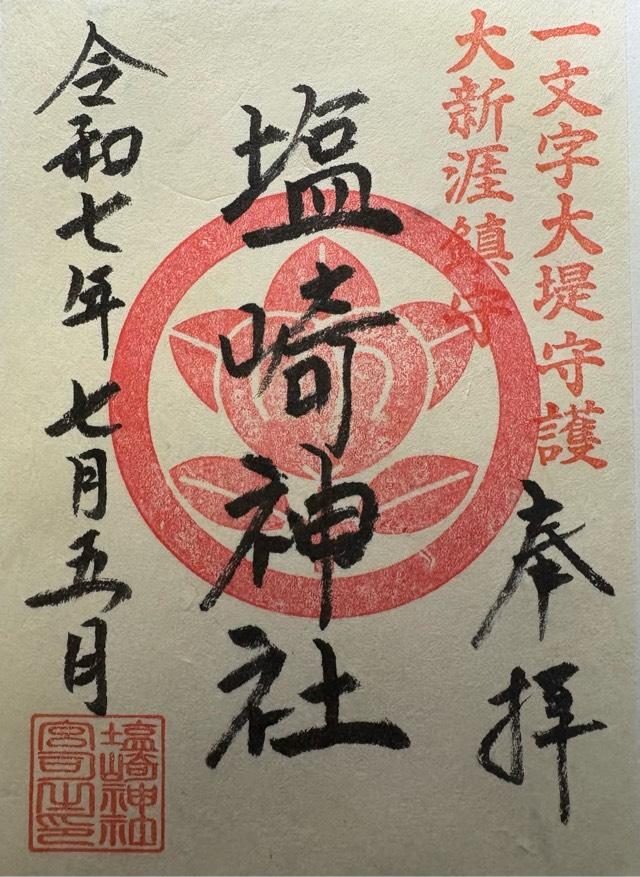 一文字大堤守護
大新涯鎮守
奉拝
塩崎神社
令和七年七月五月
塩崎神社
宮司之印